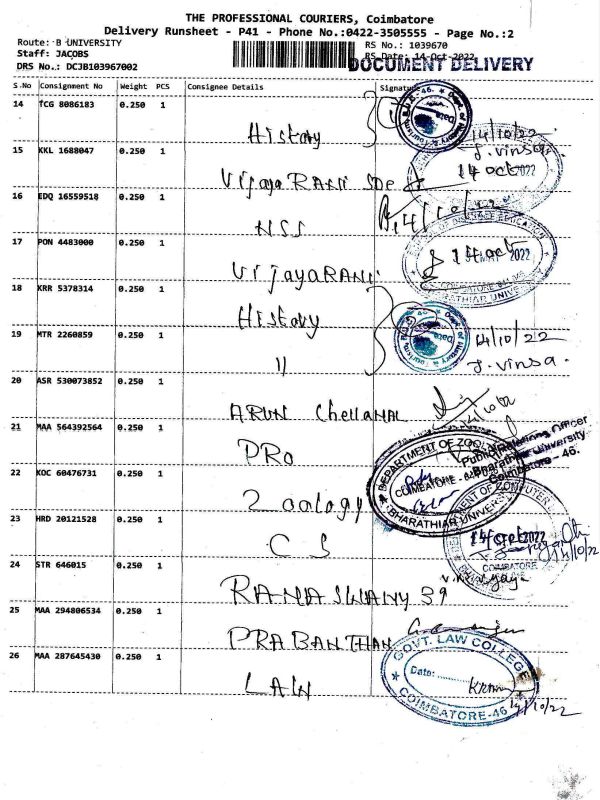 THE PROFESSIONAL COURIERS, Coimbatore
Delivery Runsheet - P41 - Phone No.:0422-3505555 - Page No.:2
Route: B UNIVERSITY
RS No.: 1039670
Staff: JACOBS
RS Date: 14-Oct-2022
DRS No.: DCJB103967002
DOCUMENT DELIVERY
S.No Consignment No Weight PCS Consignee Details Signature
14 TCG 8086183 0.250 1
History
14/10/22
J. Vinsa.
15 KKL 1688047 0.250 1
Vijaya RANI SDE
14 Oct 2022
16 EDQ 16559518 0.250 1
NSS
14/10/22
17 PON 4483000 0.250 1
VijayaRANI
14 Oct 2022
COIMBATORE
BHARATHIAR UNIVERSITY
18 KRR 5378314 0.250 1
History
19 MTR 2260859 0.250 1
11
14/10/22
J. Vinsa.
20 ASR 530073852 0.250 1
ARUN Chellamal
21 MAA 564392564 0.250 1
PRO
Public Relations Officer
Bharathiar University
Coimbatore - 46.
22 KOC 60476731 0.250 1
Zoology
DEPARTMENT OF ZOOLOGY
COIMBATORE
BHARATHIAR UNIVERSITY
23 HRD 20121528 0.250 1
CS
DEPARTMENT OF COMPUTER
14 Oct 2022
COIMBATORE
14/10/22
24 STR 646015 0.250 1
RAMASWAMY 39
25 MAA 294806534 0.250 1
PRABANTHAN
26 MAA 287645430 0.250 1
LAW
GOVT. LAW COLLEGE
Date:
COIMBATORE-46
14/10/22